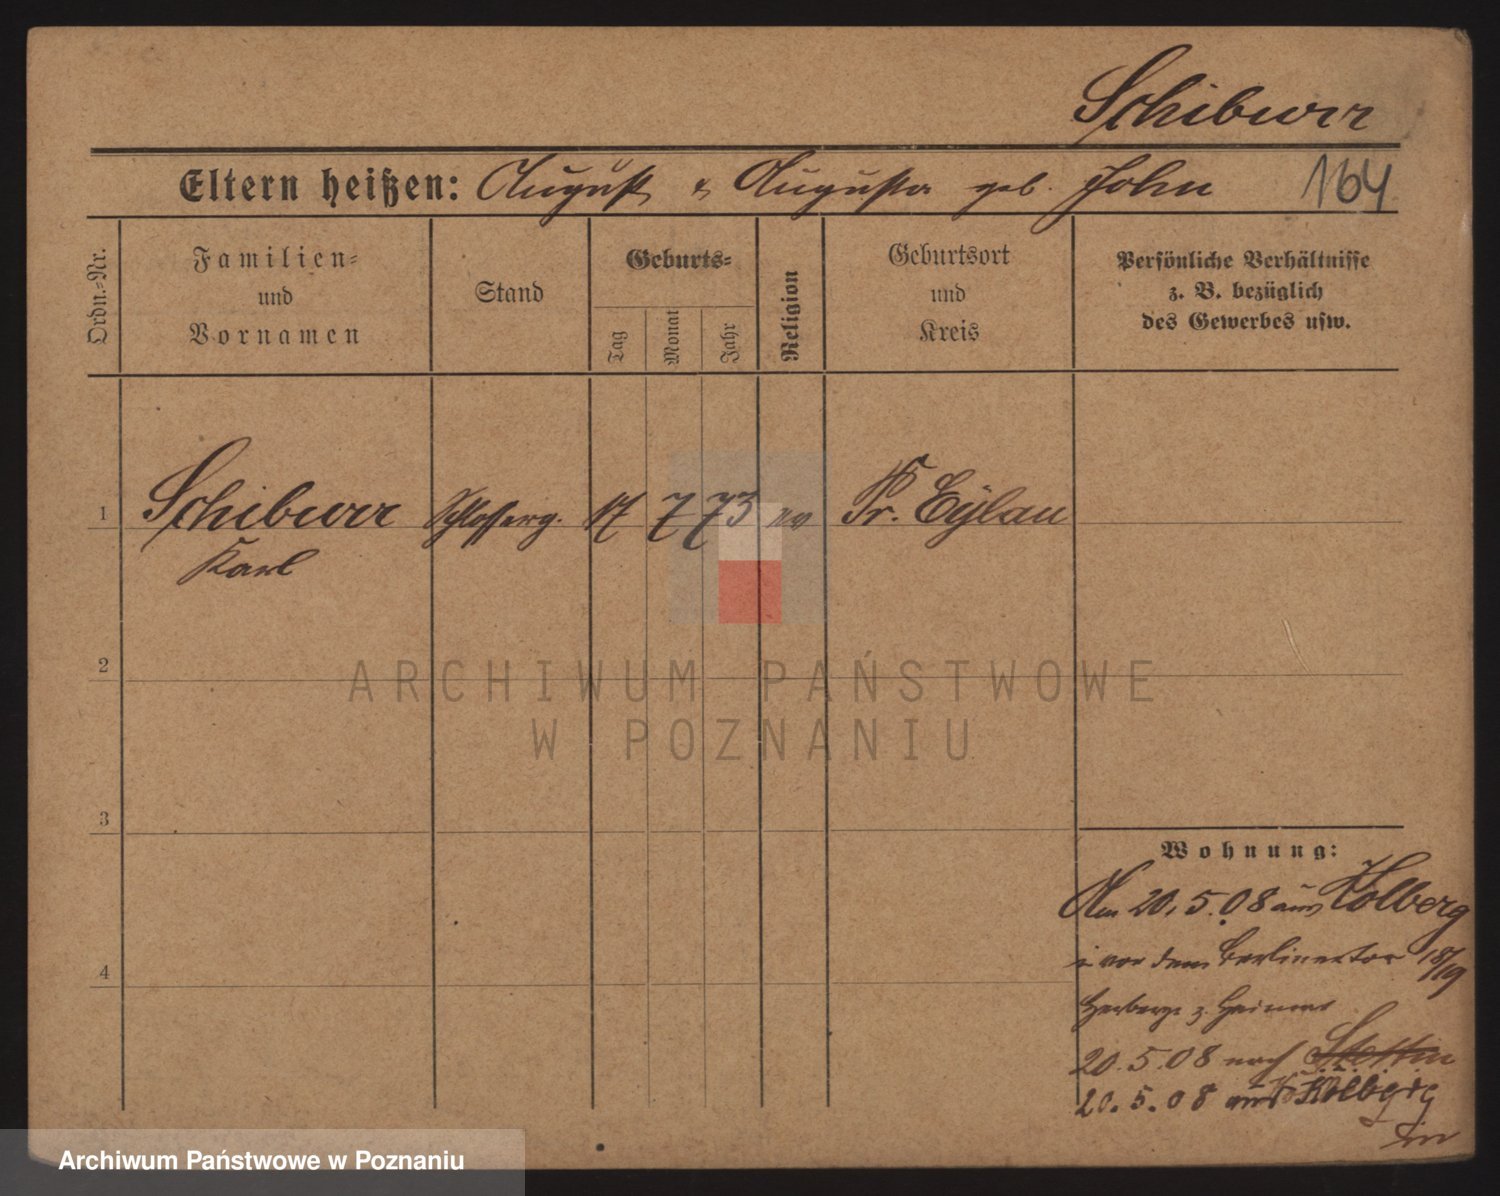 Schiburr
Eltern heißen: August & Augusta geb. John 164
Ordn.-Nr.
Familien-
und
Vornamen
Stand
Geburts-
Tag
Monat
Jahr
Religion
Geburtsort
und
Kreis
Persönliche Verhältnisse
z. B. bezüglich
des Gewerbes usw.
1 Schiburr Schlosserg. 17 7 73 ev Pr. Eylau
Karl
2
ARCHIWUM PAŃSTWOWE
W POZNANIU
3
Wohnung:
Am 20.5.08 aus Kolberg
vor dem Berlinertor 18/19
Herberge z. Heimat
4
20.5.08 nach Stettin
20.5.08 aus Kolberg
Archiwum Państwowe w Poznaniu